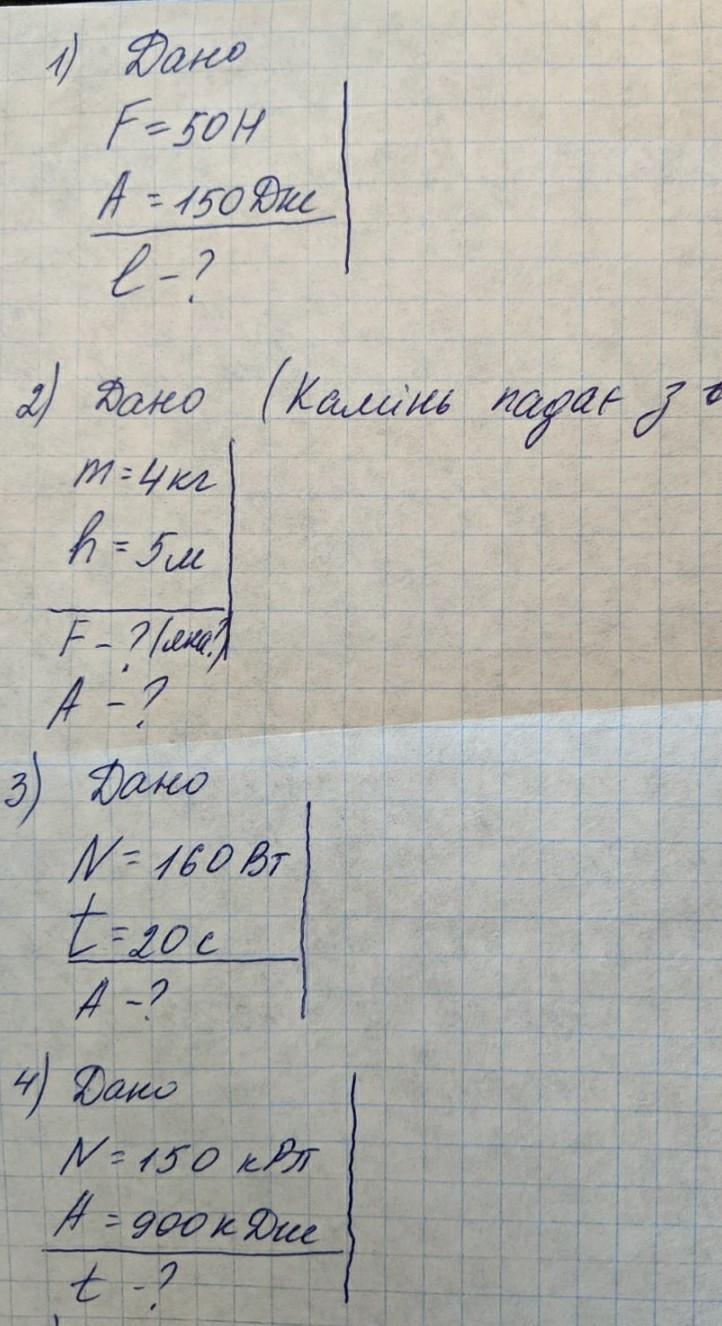 1) Дано
F = 50Н
A = 150Дж
l - ?
2) Дано (Камінь падає з
m = 4кг
h = 5м
F - ? (яка?)
A - ?
3) Дано
N = 160Вт
t = 20с
A - ?
4) Дано
N = 150 кВт
A = 900кДж
t - ?